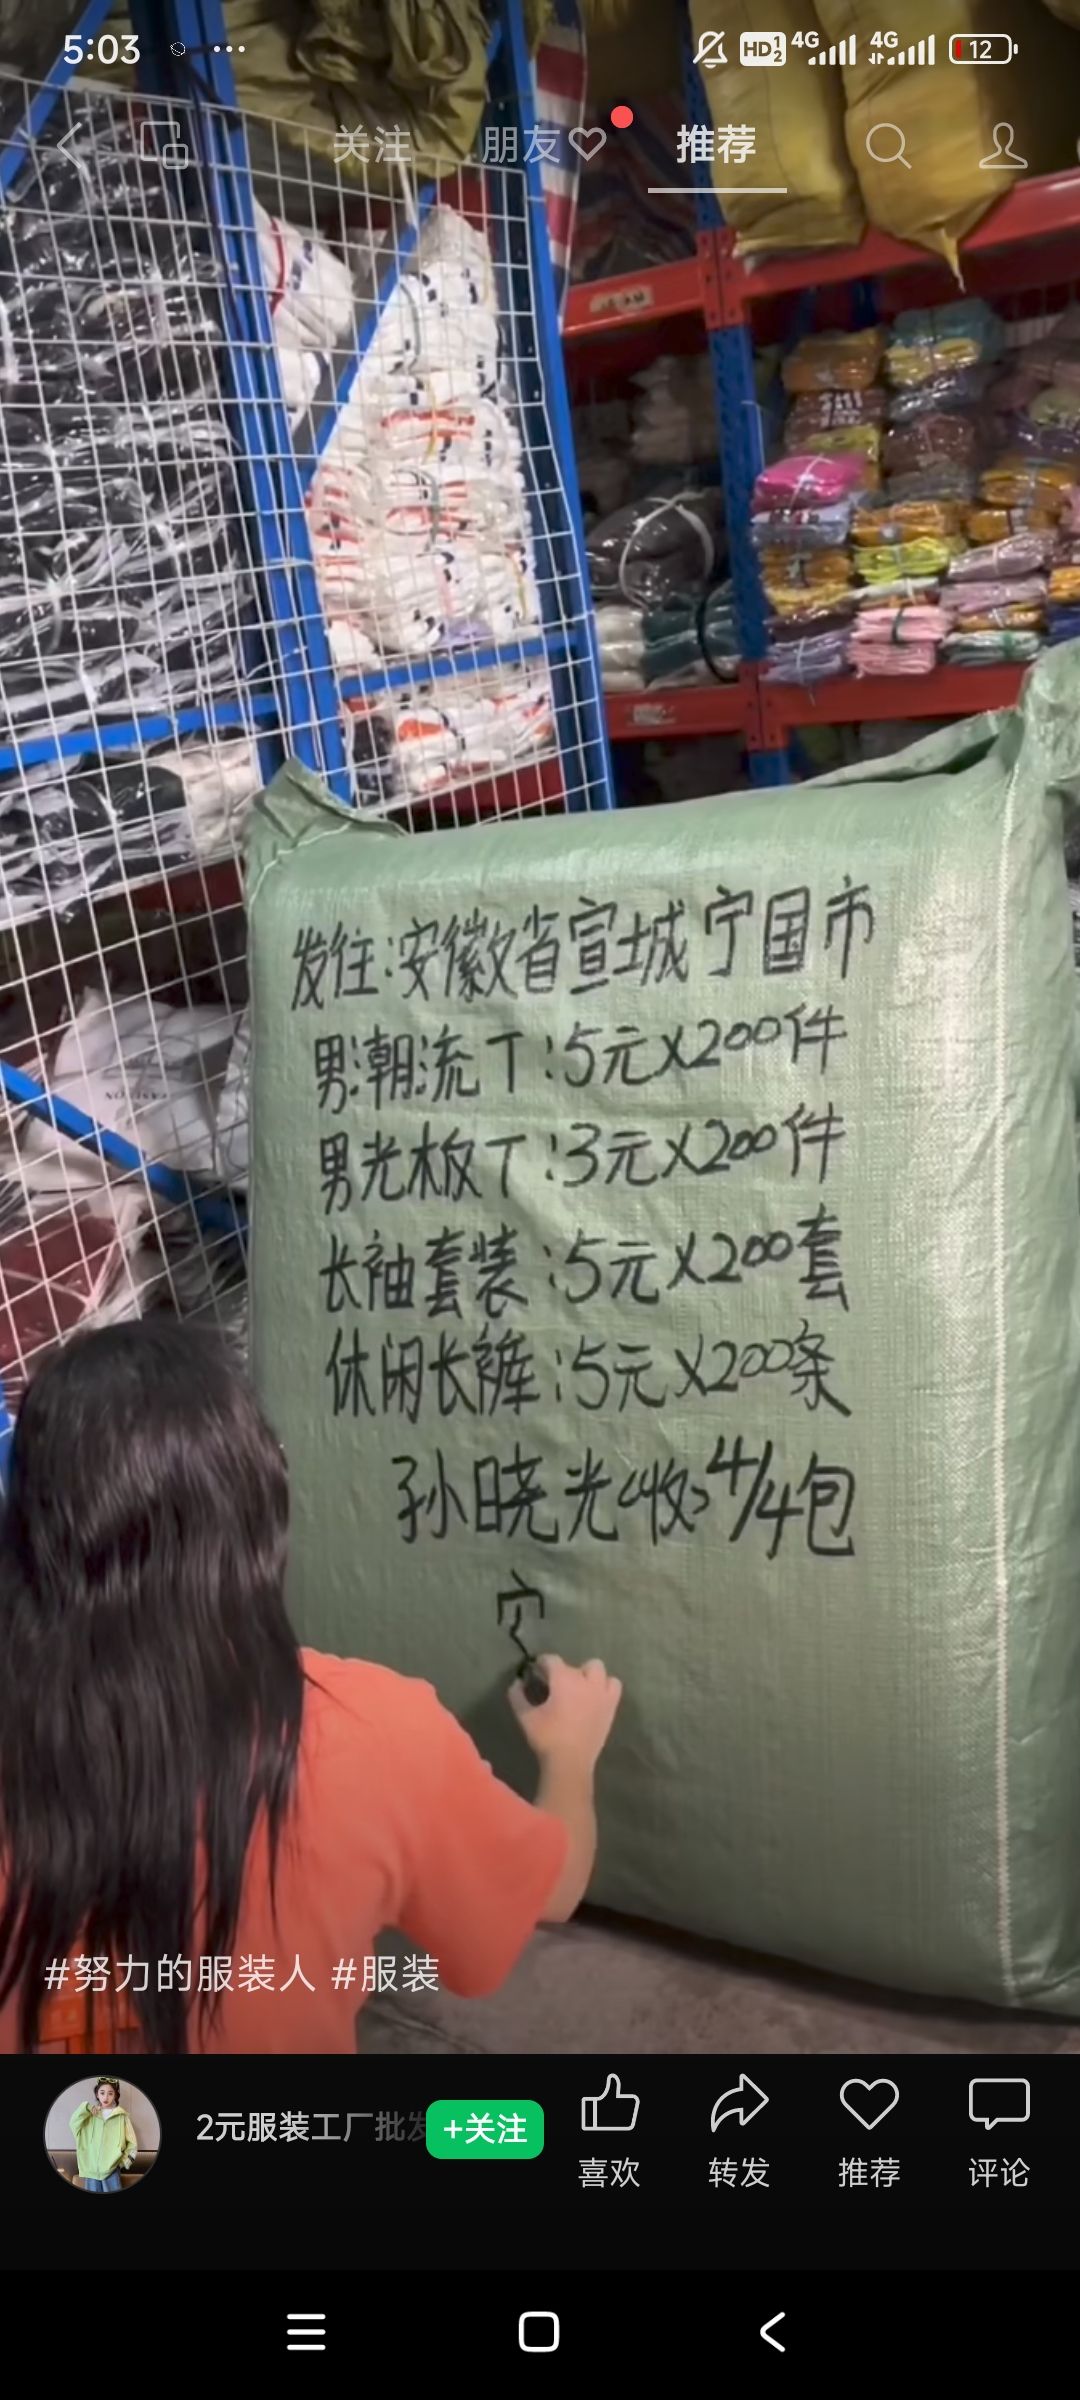 5:03
HD 1 2 4G 4G 12
关注 朋友 推荐
发往:安徽省宣城宁国市
男潮流T:5元X200件
男光板T:3元X200件
长袖套装:5元X200套
休闲长裤:5元X200条
孙晓光<收>4/4包
#努力的服装人 #服装
2元服装工厂批发
+关注
喜欢 转发 推荐 评论